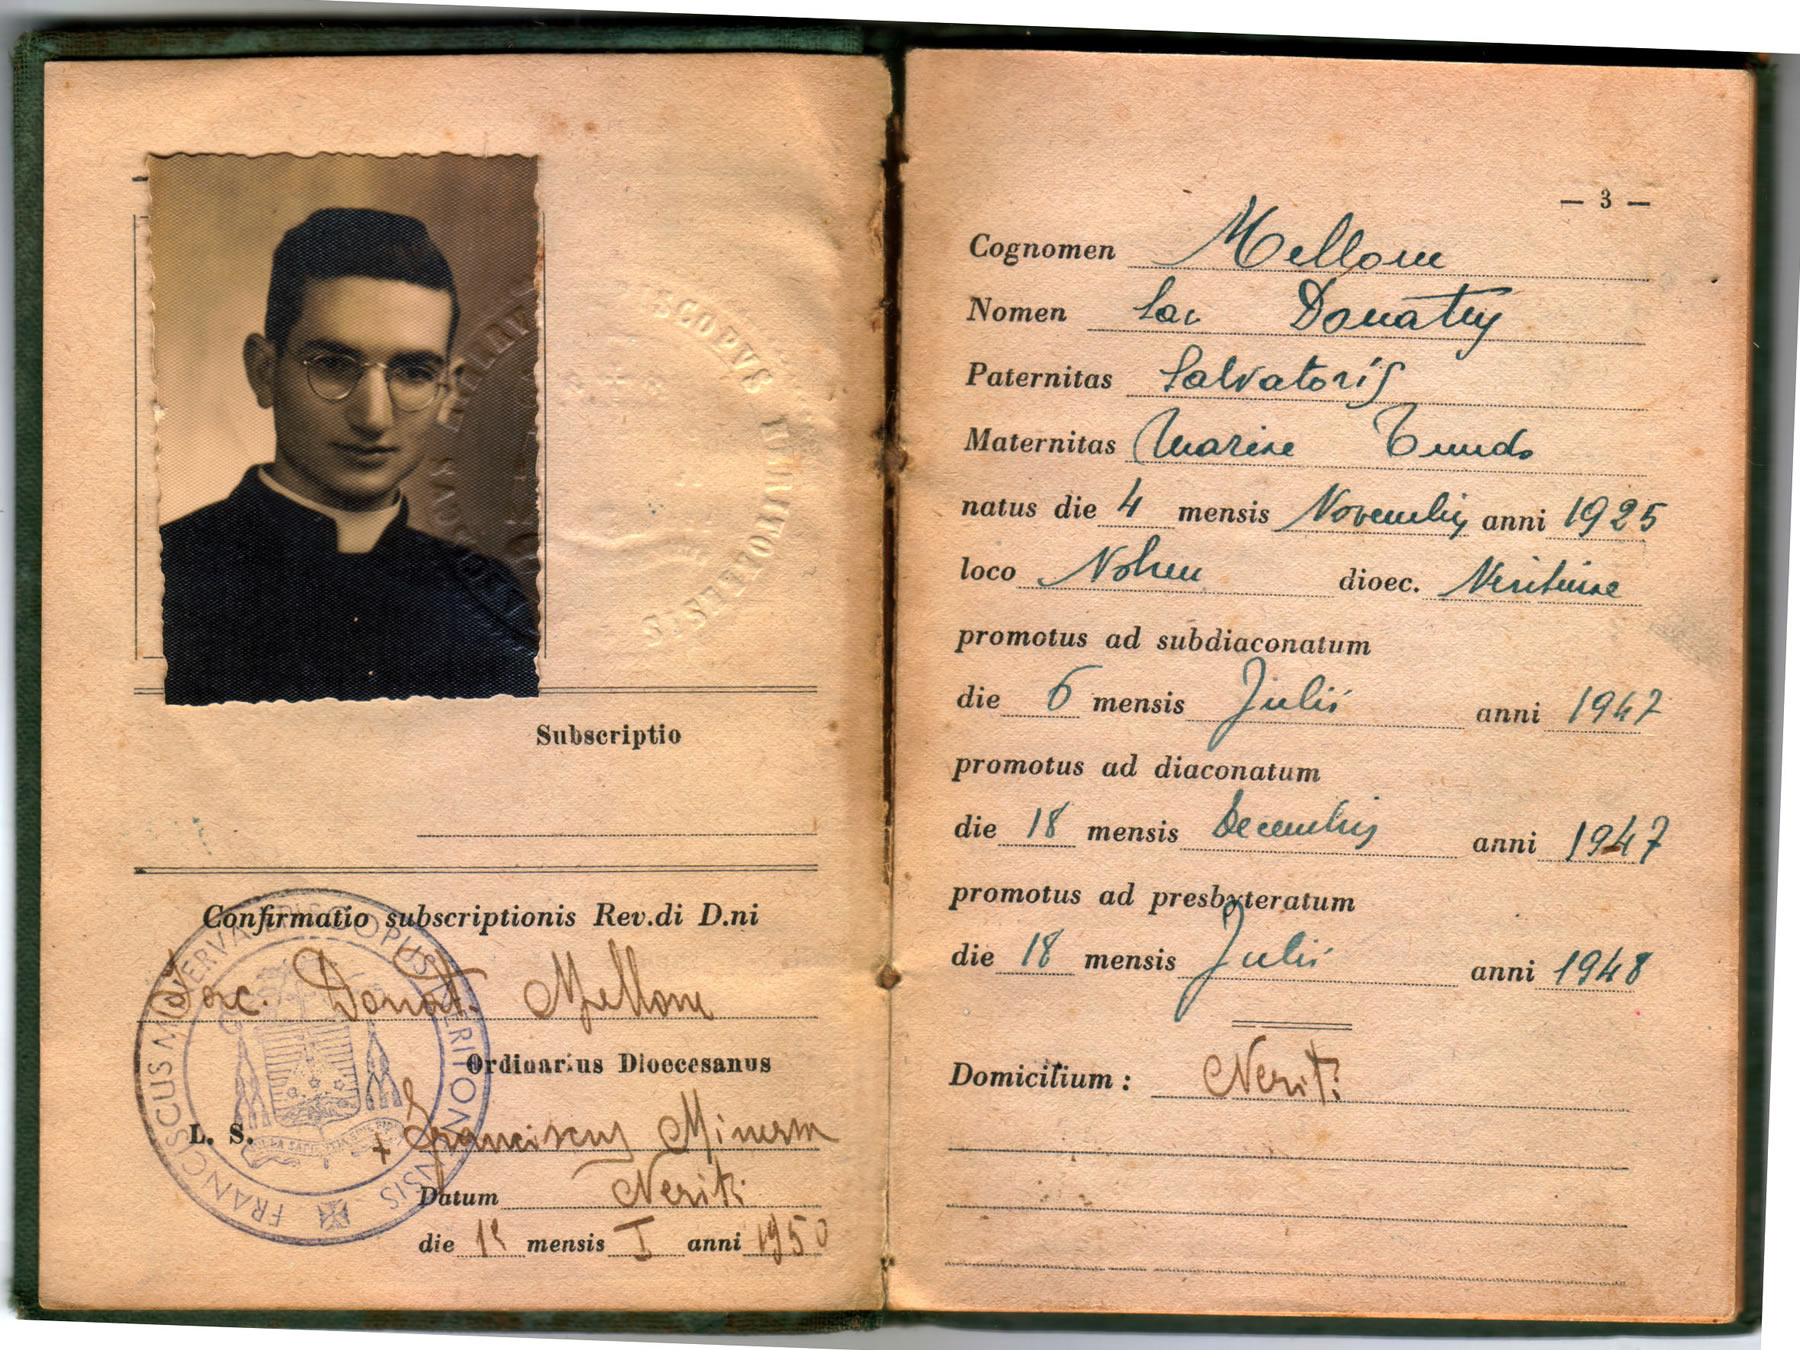 EPISCOPUS NERITONENSIS
Subscriptio
Confirmatio subscriptionis Rev.di D.ni
Sac. Donati Mellone
Ordinarius Dioecesanus
L. S.
+ Franciscus Minerva
Datum Neriti
die mensis I anni 1950
FRANCISCUS MINERVA EPISCOPUS NERITONENSIS
— 3 —
Cognomen Mellone
Nomen Sac Donatus
Paternitas Salvatoris
Maternitas Marine Tundo
natus die 4 mensis Novembris anni 1925
loco dioec. Neritine
promotus ad subdiaconatum
die 6 mensis Julii anni 1947
promotus ad diaconatum
die 18 mensis Decembris anni 1947
promotus ad presbyteratum
die 18 mensis Julii anni 1948
Domicilium : Neriti